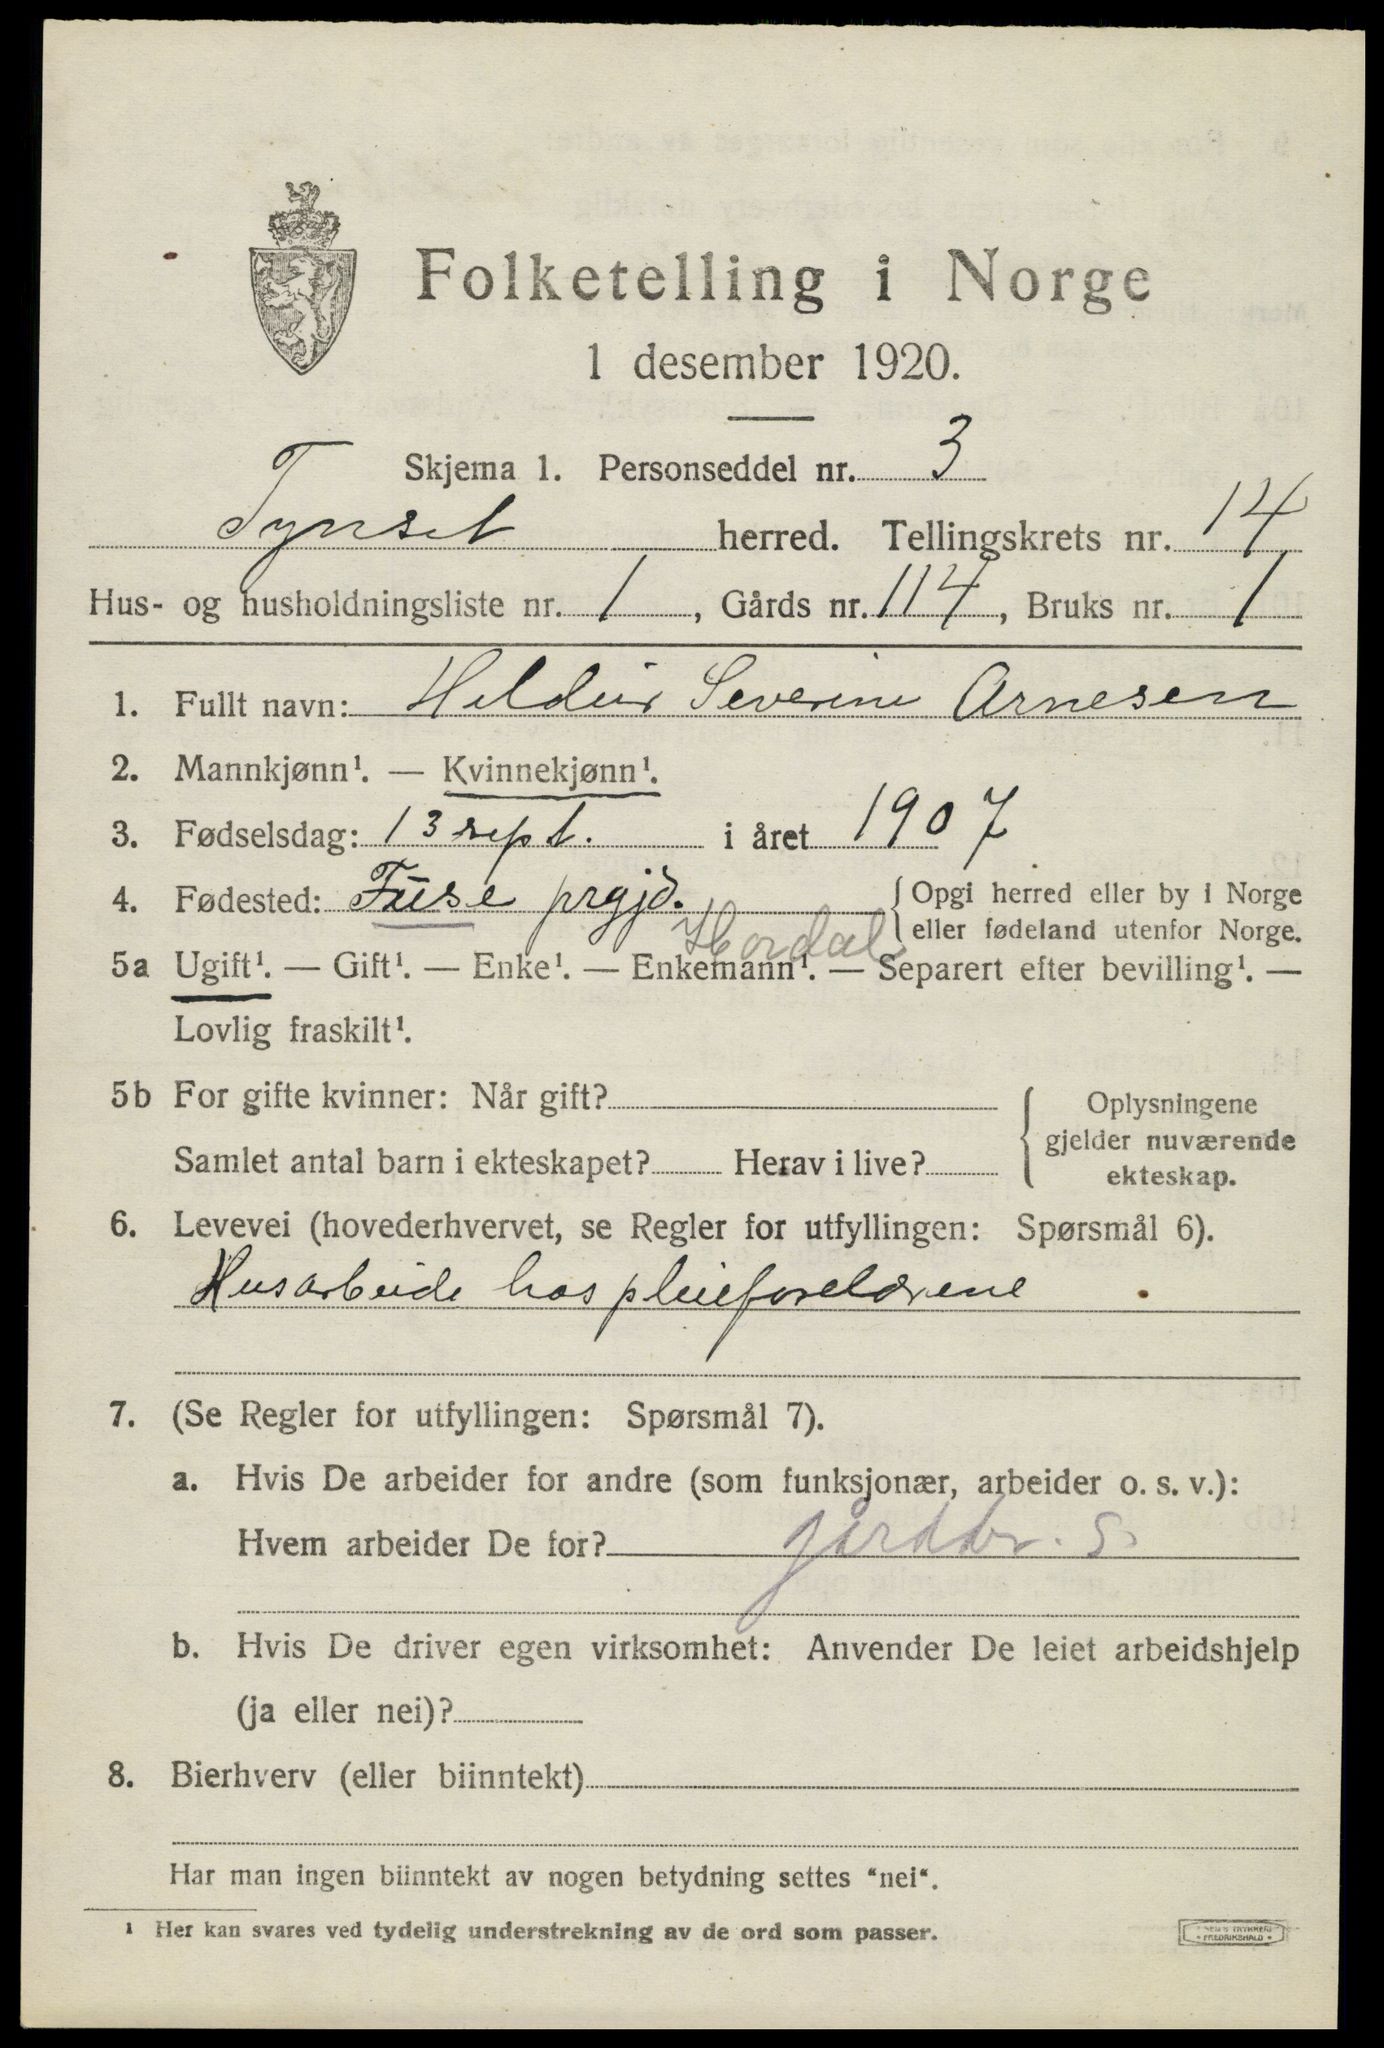 Folketelling i Norge
1 desember 1920.
Skjema 1. Personseddel nr. 3
Tynset herred. Tellingskrets nr. 14
Hus- og husholdningsliste nr. 1, Gårds nr. 114, Bruks nr. 1
1. Fullt navn: Severine Arnesen
2. Mannkjønn¹. — Kvinnekjønn¹.
3. Fødselsdag: 13 sept. i året 1907
4. Fødested: Fuse prgjd. { Opgi herred eller by i Norge
eller fødeland utenfor Norge.
Hordal
5a Ugift¹. — Gift¹. — Enke¹. — Enkemann¹. — Separert efter bevilling¹. —
Lovlig fraskilt¹.
5b For gifte kvinner: Når gift? { Oplysningene
gjelder nuværende
Samlet antal barn i ekteskapet? Herav i live? ekteskap.
6. Levevei (hovederhvervet, se Regler for utfyllingen: Spørsmål 6).
Husarbeide hos pleieforeldrene
7. (Se Regler for utfyllingen: Spørsmål 7).
a. Hvis De arbeider for andre (som funksjonær, arbeider o. s. v.):
Hvem arbeider De for? gårdbr. S.
b. Hvis De driver egen virksomhet: Anvender De leiet arbeidshjelp
(ja eller nei)?
8. Bierhverv (eller biinntekt)
Har man ingen biinntekt av nogen betydning settes "nei".
¹ Her kan svares ved tydelig understrekning av de ord som passer.
TRYKKERI
FREDRIKSHALD